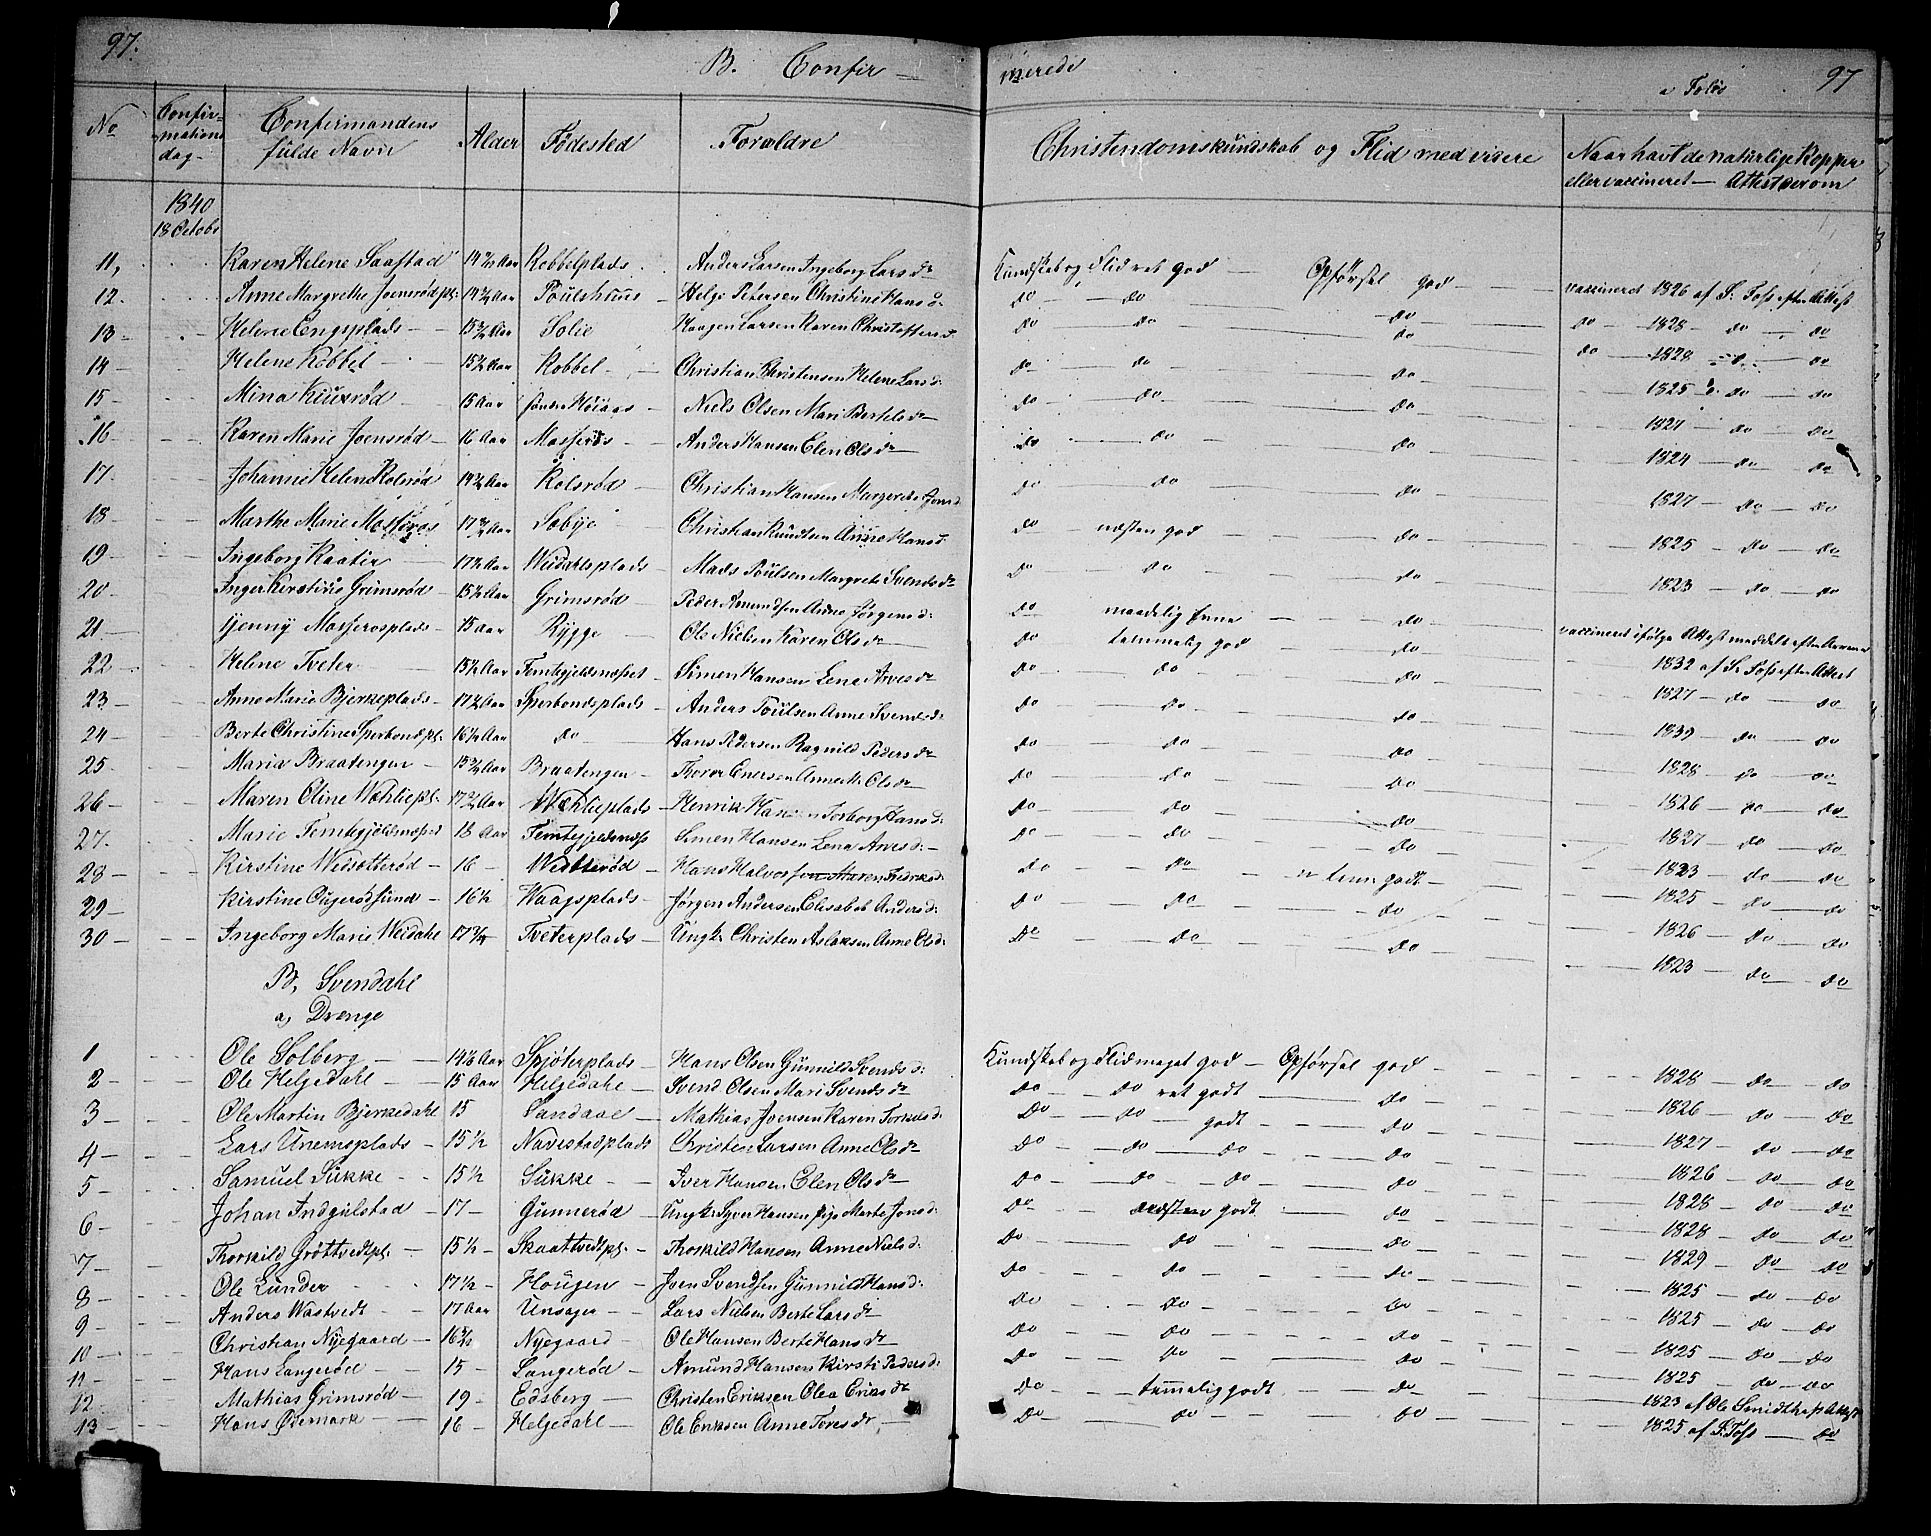 97. B. Confir – merede 97
a Folio
No Confirmations dag Confirmandens fulde Navne Alder Fødested Forældre Christendomskundskab og Flid med videre Naar havt de naturlige Kopper eller vaccineret – Attest derom
1840
18 October
11, Karen Helene Saastad Aar Kobbelplads Anders Larsen Ingeborg Larsdr Kundskab og Flid ret god – Opførsel god – vaccineret 1826 af S: Foss efter Attest
12 Anne Margrethe Joensrødpl: Aar Poulshuus – Helge Petersen Christine Hansd: do – do – do do 1828 – do – do
13 Helene Engsplads – Aar Solie Haagen Larsen Karen Christoffersd: do do – do do 1828 – do
14 Helene Kobbel – 15½ Aar Kobbel – Christian Christensen Helene Larsd: do do – do 1825 do – do
15 Mina – 15 Aar søndre Høiaas – Niels Olsen Mari Bertelsdr do – do – do 1827 – do – do
16 Karen Marie Joensrød – 16 Aar Mosseros – Anders Hansen Elen Olsdr do – do – do 1824 – do – do
17 Johanne Helene Kolsrød Aar Kolsrød – Christian Hansen Margrethe Jonsd: do do – do 1827 – do – do
18 Marthe Marie Mosseros Aar Sobye – Christian Knudsen Anne Hansd: do næsten god – do 1825 – do – do
19 Ingeborg Kaatier 17½ Aar Weidahlsplads – Mads Poulsen Margrete Svendsdr do – do – do 1823 – do – do
20 Inger Kirstine Grimsrød 15½ Aar Grimsrød – Peder Amundsen Anne Jørgensd: do maadelig Evne – do vaccineret ifølge Attest meddelt efter
21 – Jenny Mosserosplads – 15 Aar Rygge – Ole Nielsen Karen Olsdr do temmelig god – do 1832 af S: Foss efter Attest
22 – Helene Tveter – 15½ Aar Femtegjeldsnæsset Simen Hansen Lena Arvesdr do – do – do 1827 – do – do
23 – Anne Marie Bjerkeplads – 17½ Aar Sperbondsplads – Anders Poulsen Anne Svendsd: do – do – do 1839 – do – do
24 – Berte Christine Sperbondspl: 16½ Aar do – Hans Pedersen Ragnild Pedersdr do – do – do 1828 – do – do
25 – Maria Braatengen – Aar Braatengen – Thorer Enersen Anne M. Olsdr do – do – do 1826 – do – do
26 – Maren Oline Wæhliepl: Aar Wæhlieplads – Henrik Hansen Torborg Hansd: do – do – do 1827 – do – do
27. Marie Femtegjeldsnæsset 18 Aar Femtegjeldsnæss Simen Hansen Lena Arvesd: – do – do – do 1823 – do – do
28 – Kirstine Wedsotterød – 16 – Wedtterød – Hans Halvorsen Maren Fredriksd: do – do – " tem: godt – 1825 – do – do
29 – Kirstine Ougerødsund – 16½ Waagsplads – Jørgen Andersen Elisabeth Andersd: do – do – do 1826 – do – do
30 – Ingeborg Marie Weidahl – Tveterplads – Ungk: Christen Aslaksen Anne Olsd: do – do – do 1823 – do – do
B, Svendahl
a, Drenge
1 Ole Solberg – Aar Spjøterplads – Hans Olsen Gunnild Svendsd: Kundskab og Flid meget god – Opførsel god – 1828 – do – do
2 – Ole Helgedahl – 15 Aar Helgedahl – Svend Olsen Mari Svendsdr do – do ret godt – do 1826 – do – do
3 – Ole Martin Bjerkedahl 15 Sandaae – Mathias Joensen Karen Torkelsd: do – do – godt – do 1827 – do – do
4 – Lars Unemsplads – 15½ Navestadplads Christen Larsen Anne Olsdr do – do – do – do 1826 – do – do
5 – Samuel Sukke – 15½ Sukke – Iver Hansen Elen Olsdr do – do – do – do 1828 – do – do
6 – Johan Indgulstad – 17 – Gunnerød – Ungk: Syver Hansen Pige Marte Jonsd: do – næsten godt – do 1828 – do – do
7 – Thorkild Grøttvedtpl: – 15½ – Skaattvedtpl: – Thorkild Hansen Anne Nielsd: do – do – do 1829 – do – do
8 – Ole Lunder 17½ – Hougen – Joen Svendsen Gunnild Hansd: do – do – do 1825 – do – do
9 – Anders Wastvedt – 17 Aar Unsager – Lars Nielsen Berte Larsdr do – do – do 1825 – do – do
10 – Christian Nyegaard – Nyegaard – Ole Hansen Berte Hansdr do – do – do 1825 – do – do
11 – Hans Langerød – 15 – Langerød – Amund Hansen Kirsti Pedersd: do – do – do 1825 – do – do
12 – Mathias Grimsrød – 19 – Edsberg – Christen Eriksen Olea Eriksdr do – temmelig godt – do 1823 af Ole Smidthass Attest
13 – Hans Ødemark – 16 – Helgedahl – Ole Eriksen Anne Toresdr – do – do – do 1825 af S. Foss – do